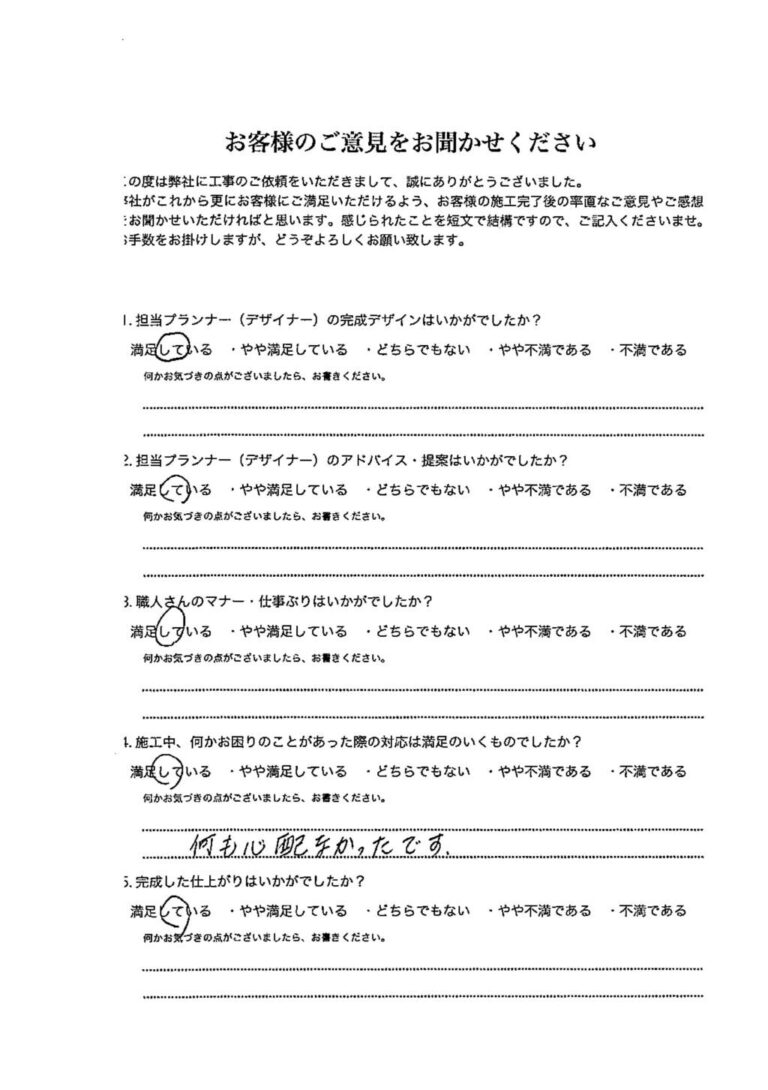 お客様のご意見をお聞かせください
の度は弊社に工事のご依頼をいただきまして、誠にありがとうございました。
社がこれから更にお客様にご満足いただけるよう、お客様の施工完了後の率直なご意見やご感想
お聞かせいただければと思います。感じられたことを短文で結構ですので、ご記入くださいませ。
手数をお掛けしますが、どうぞよろしくお願い致します。
1. 担当プランナー（デザイナー）の完成デザインはいかがでしたか？
満足している ・やや満足している ・どちらでもない ・やや不満である ・不満である
何かお気づきの点がございましたら、お書きください。
2. 担当プランナー（デザイナー）のアドバイス・提案はいかがでしたか？
満足している ・やや満足している ・どちらでもない ・やや不満である ・不満である
何かお気づきの点がございましたら、お書きください。
3. 職人さんのマナー・仕事ぶりはいかがでしたか？
満足している ・やや満足している ・どちらでもない ・やや不満である ・不満である
何かお気づきの点がございましたら、お書きください。
4. 施工中、何かお困りのことがあった際の対応は満足のいくものでしたか？
満足している ・やや満足している ・どちらでもない ・やや不満である ・不満である
何かお気づきの点がございましたら、お書きください。
何も心配なかったです.
5. 完成した仕上がりはいかがでしたか？
満足している ・やや満足している ・どちらでもない ・やや不満である ・不満である
何かお気づきの点がございましたら、お書きください。